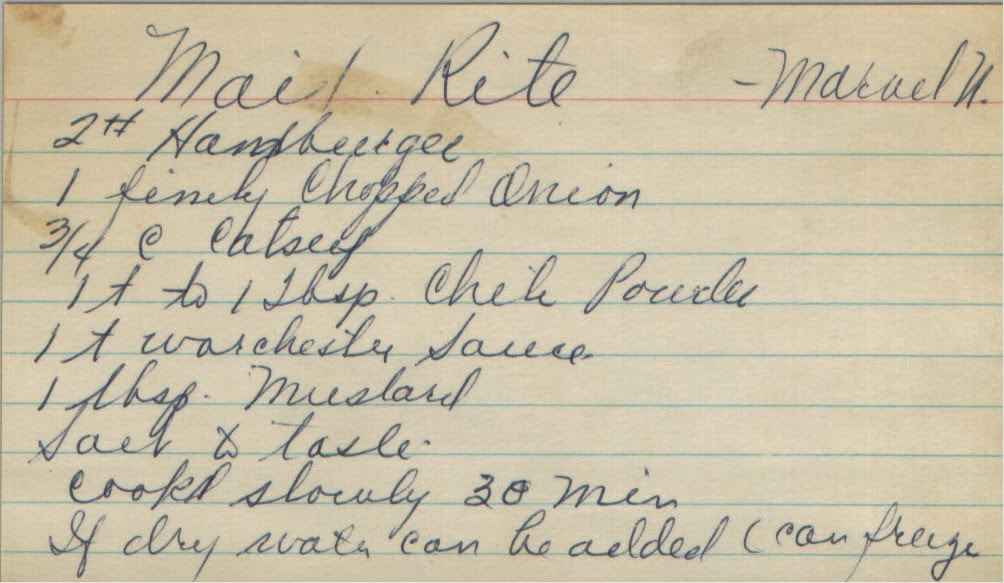 Maid Rite - Marvel N.
2# Hamburger
1 finely Chopped Onion
3/4 C Catsup
1 t to 1 Tbsp. Chili Powder
1 t worchester Sauce
1 tbsp. Mustard
Salt to taste
Cook slowly 30 Min
If dry water can be added (can freeze